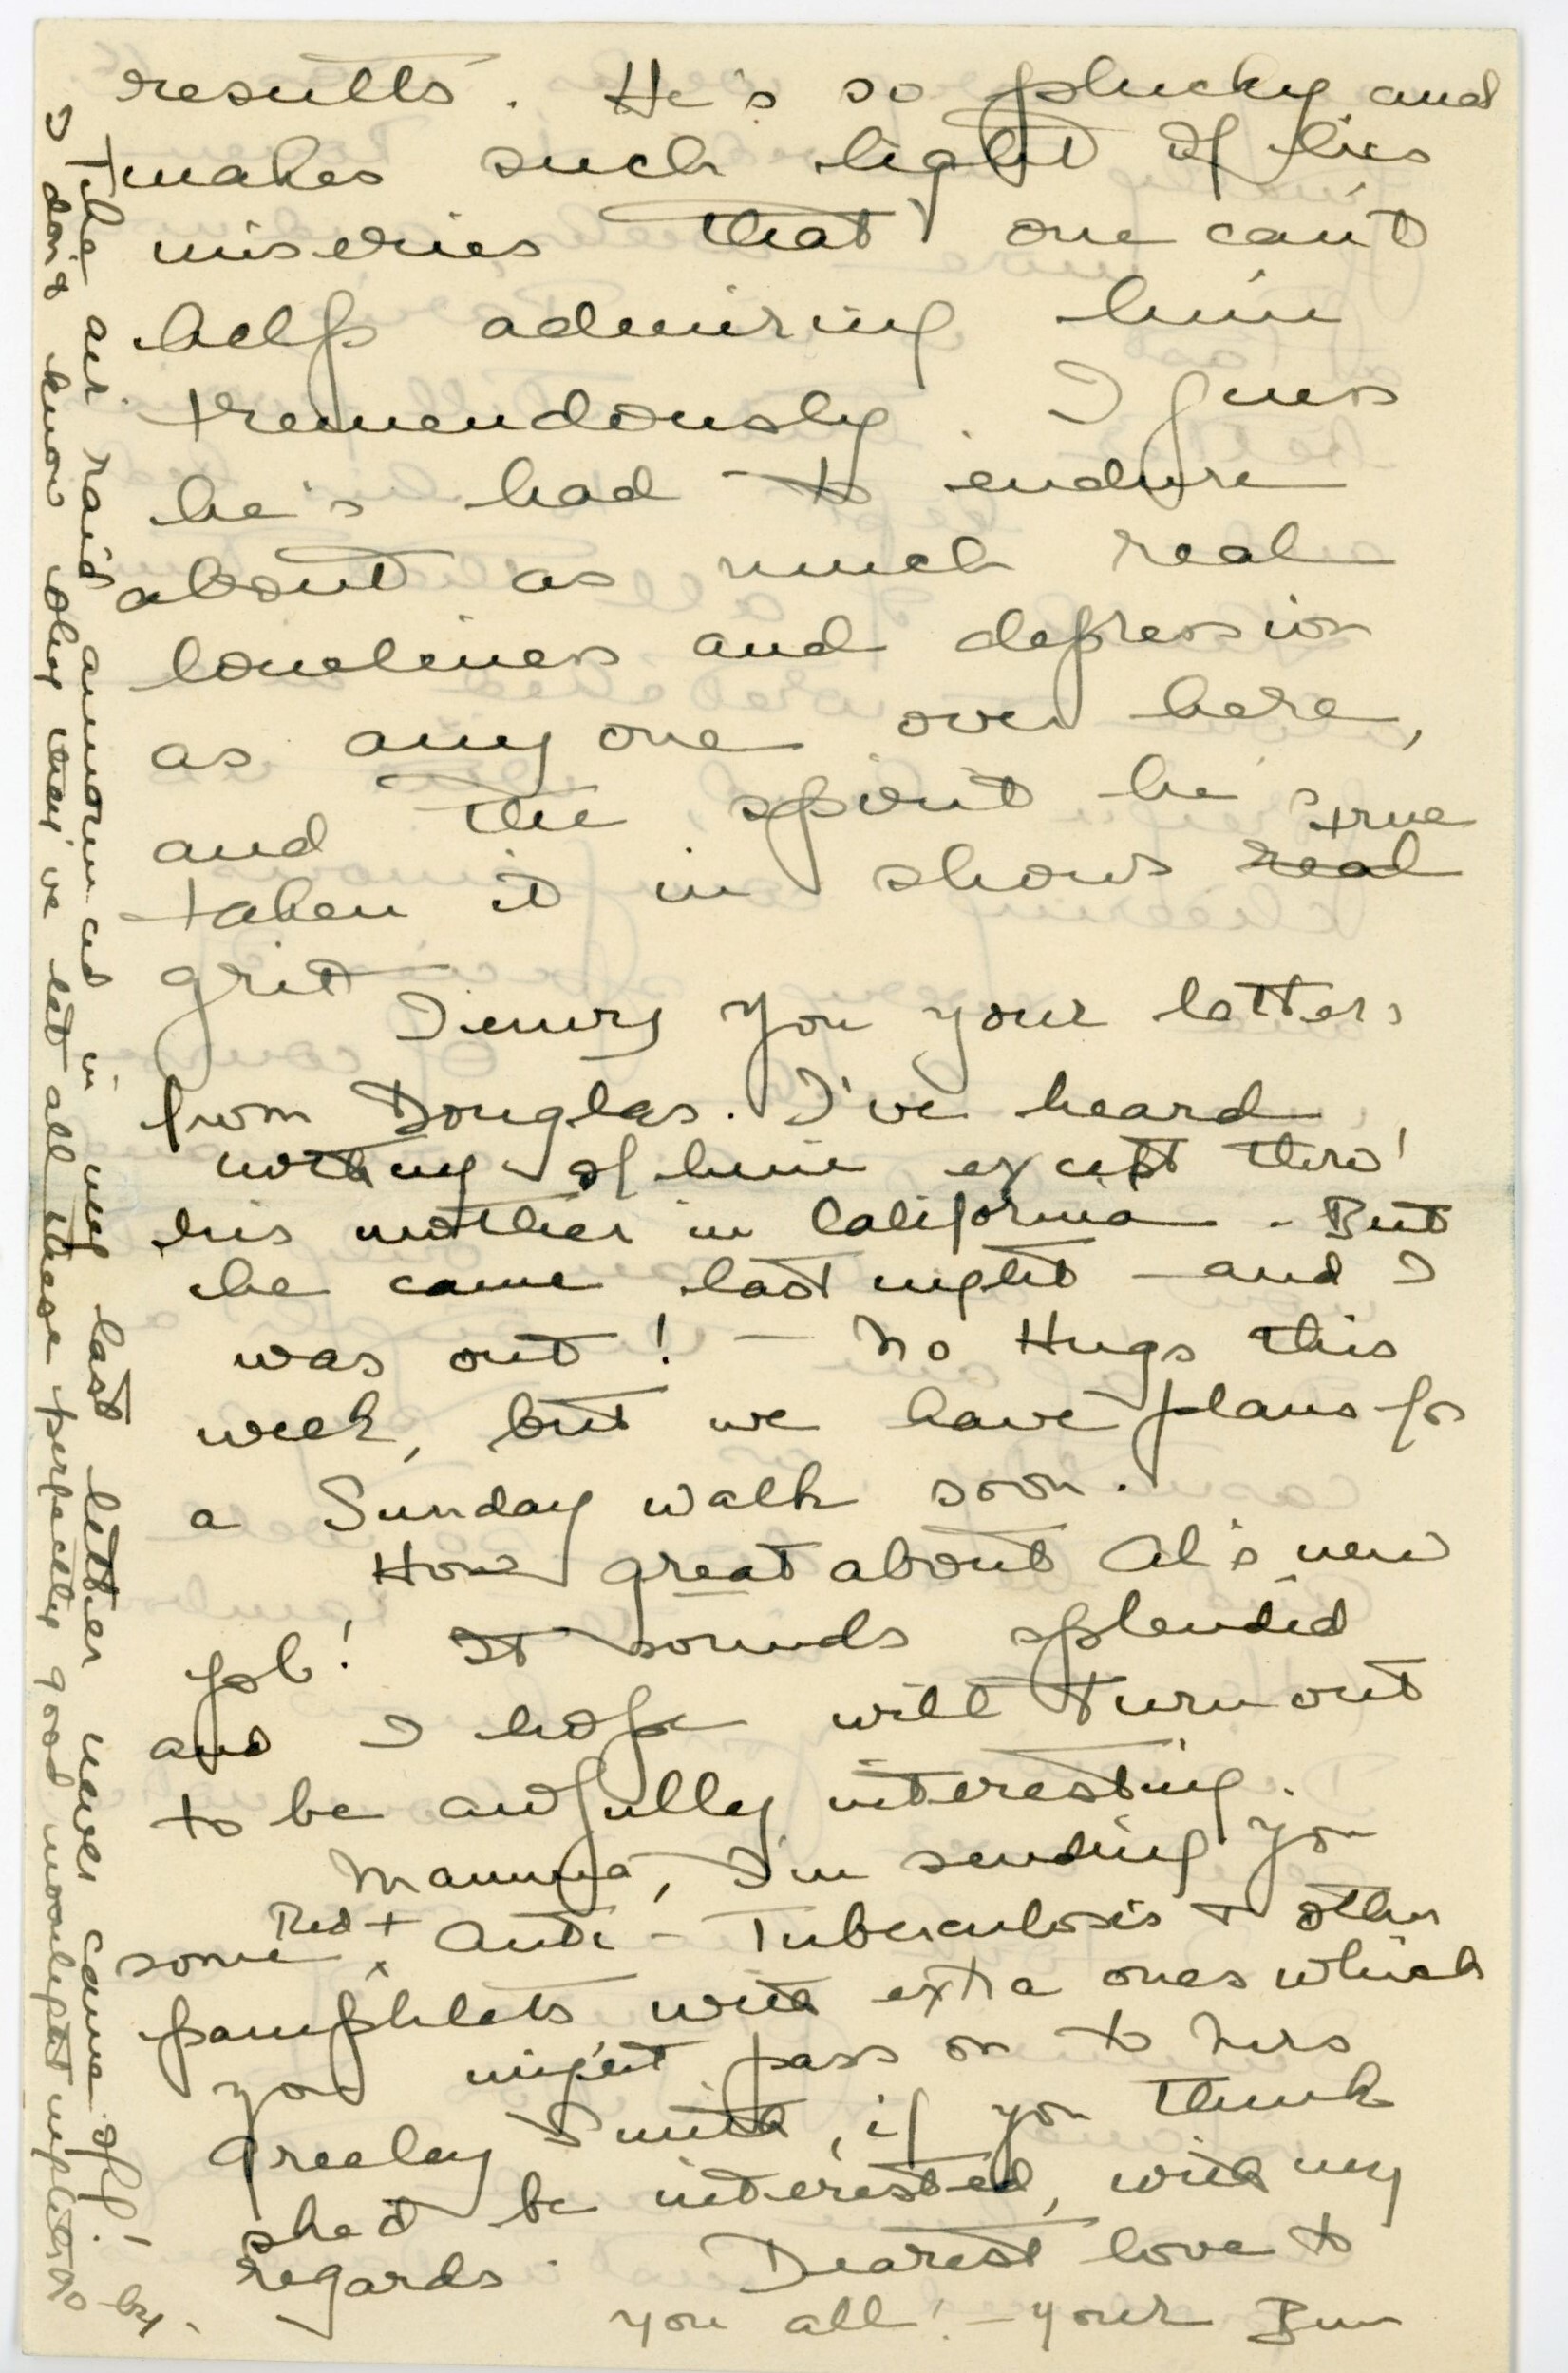 results. He's so plucky and
makes such light of his
miseries that one can't
help admiring him
tremendously. I guess
he's had to endure
about as much real
loneliness and depression
as any one over here,
and the spirit he's
taken it in shows ~~real~~ true
grit
I envy you your letters
from Douglas. I've heard
nothing of him except thro'
his mother in California - But
he came last night - and I
was out! - No Hugs this
week, but we have plans for
a Sunday walk soon.
How great about Al's new
job! It sounds splendid
and I hope will turn out
to be awfully interesting.
Mamma, I'm sending you
some Red + Anti-Tuberculosis + other
pamphlets with extra ones which
you might pass on to Mrs
Greeley Smith, if you think
she'd be interested, with my
regards. Dearest love to
you all! - your Bun
The air raid announced in my last letter never came off! -
I don't know why they've let all these perfectly good moonlight nights go by.